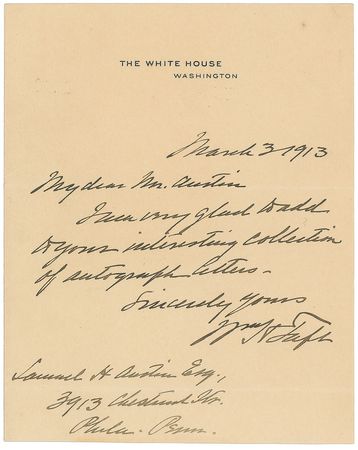 THE WHITE HOUSE
WASHINGTON
March 3 1913
My dear Mr. Austin
I am very glad to add
to your interesting collection
of autograph letters -
Sincerely yours
Wm H Taft
Samuel H Austin Esq.,
3913 Chestnut Str.
Phila. Penn.